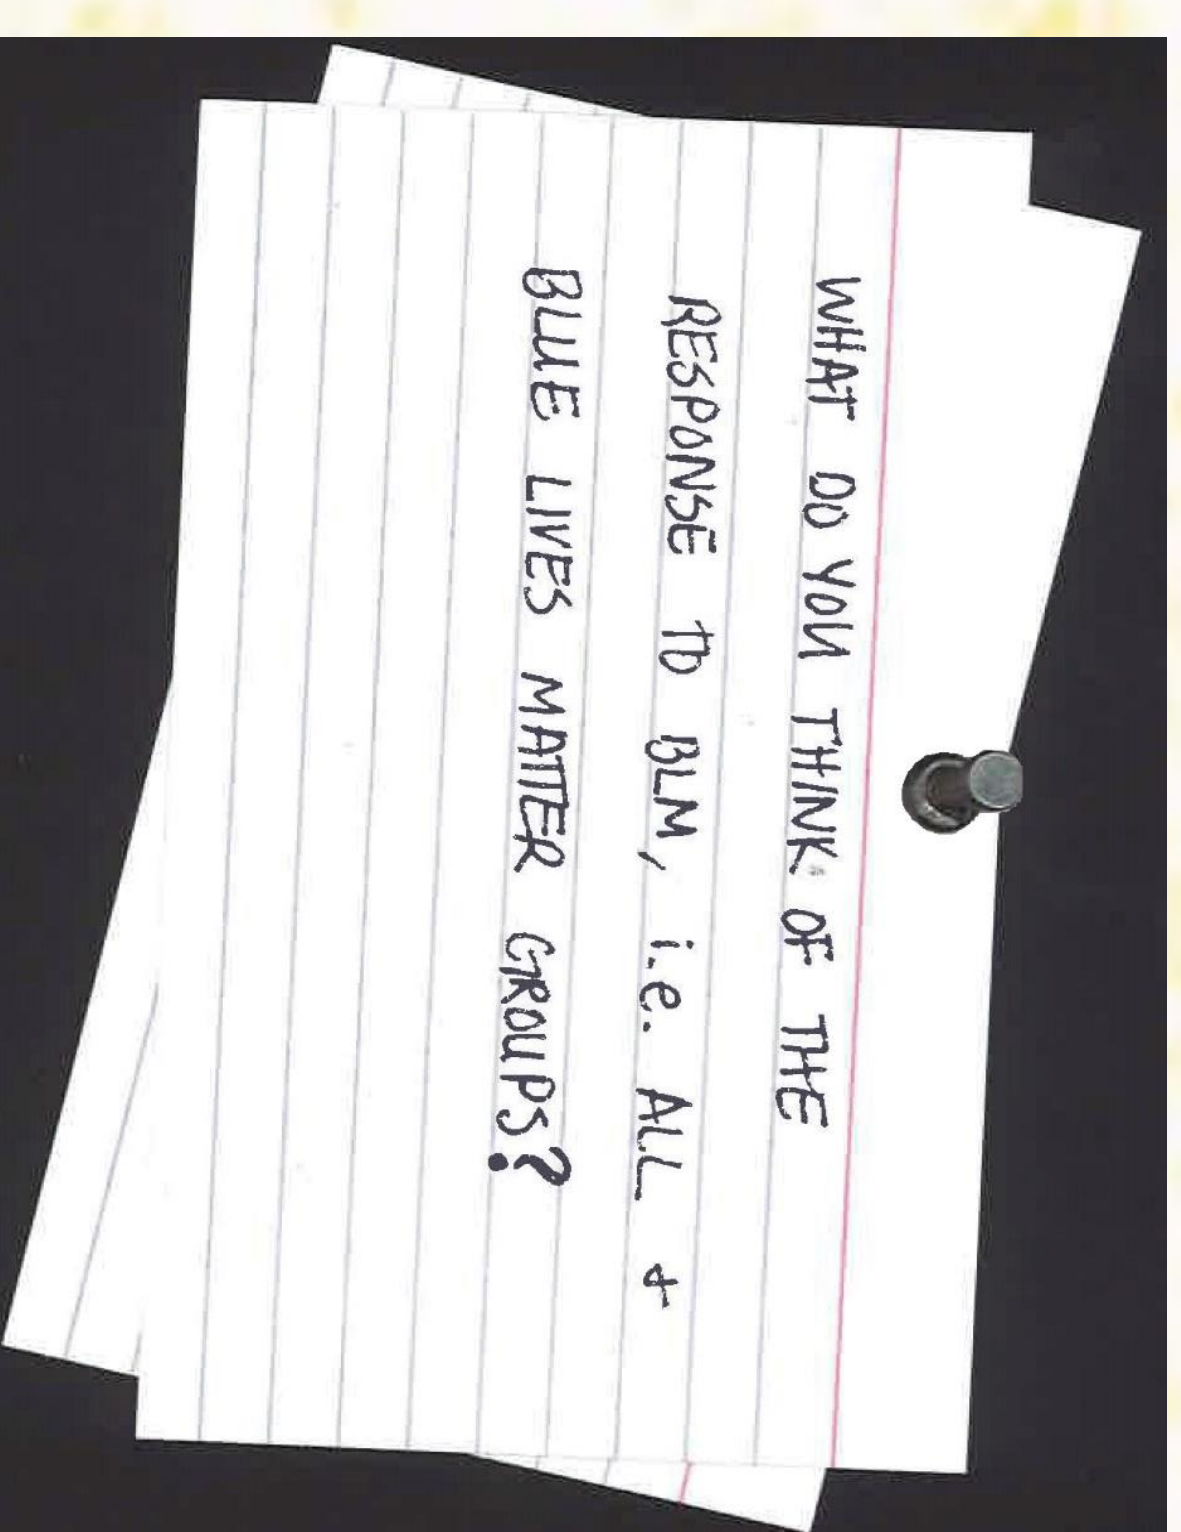 WHAT DO YOU THINK OF THE
RESPONSE TO BLM, i.e. ALL +
BLUE LIVES MATTER GROUPS?